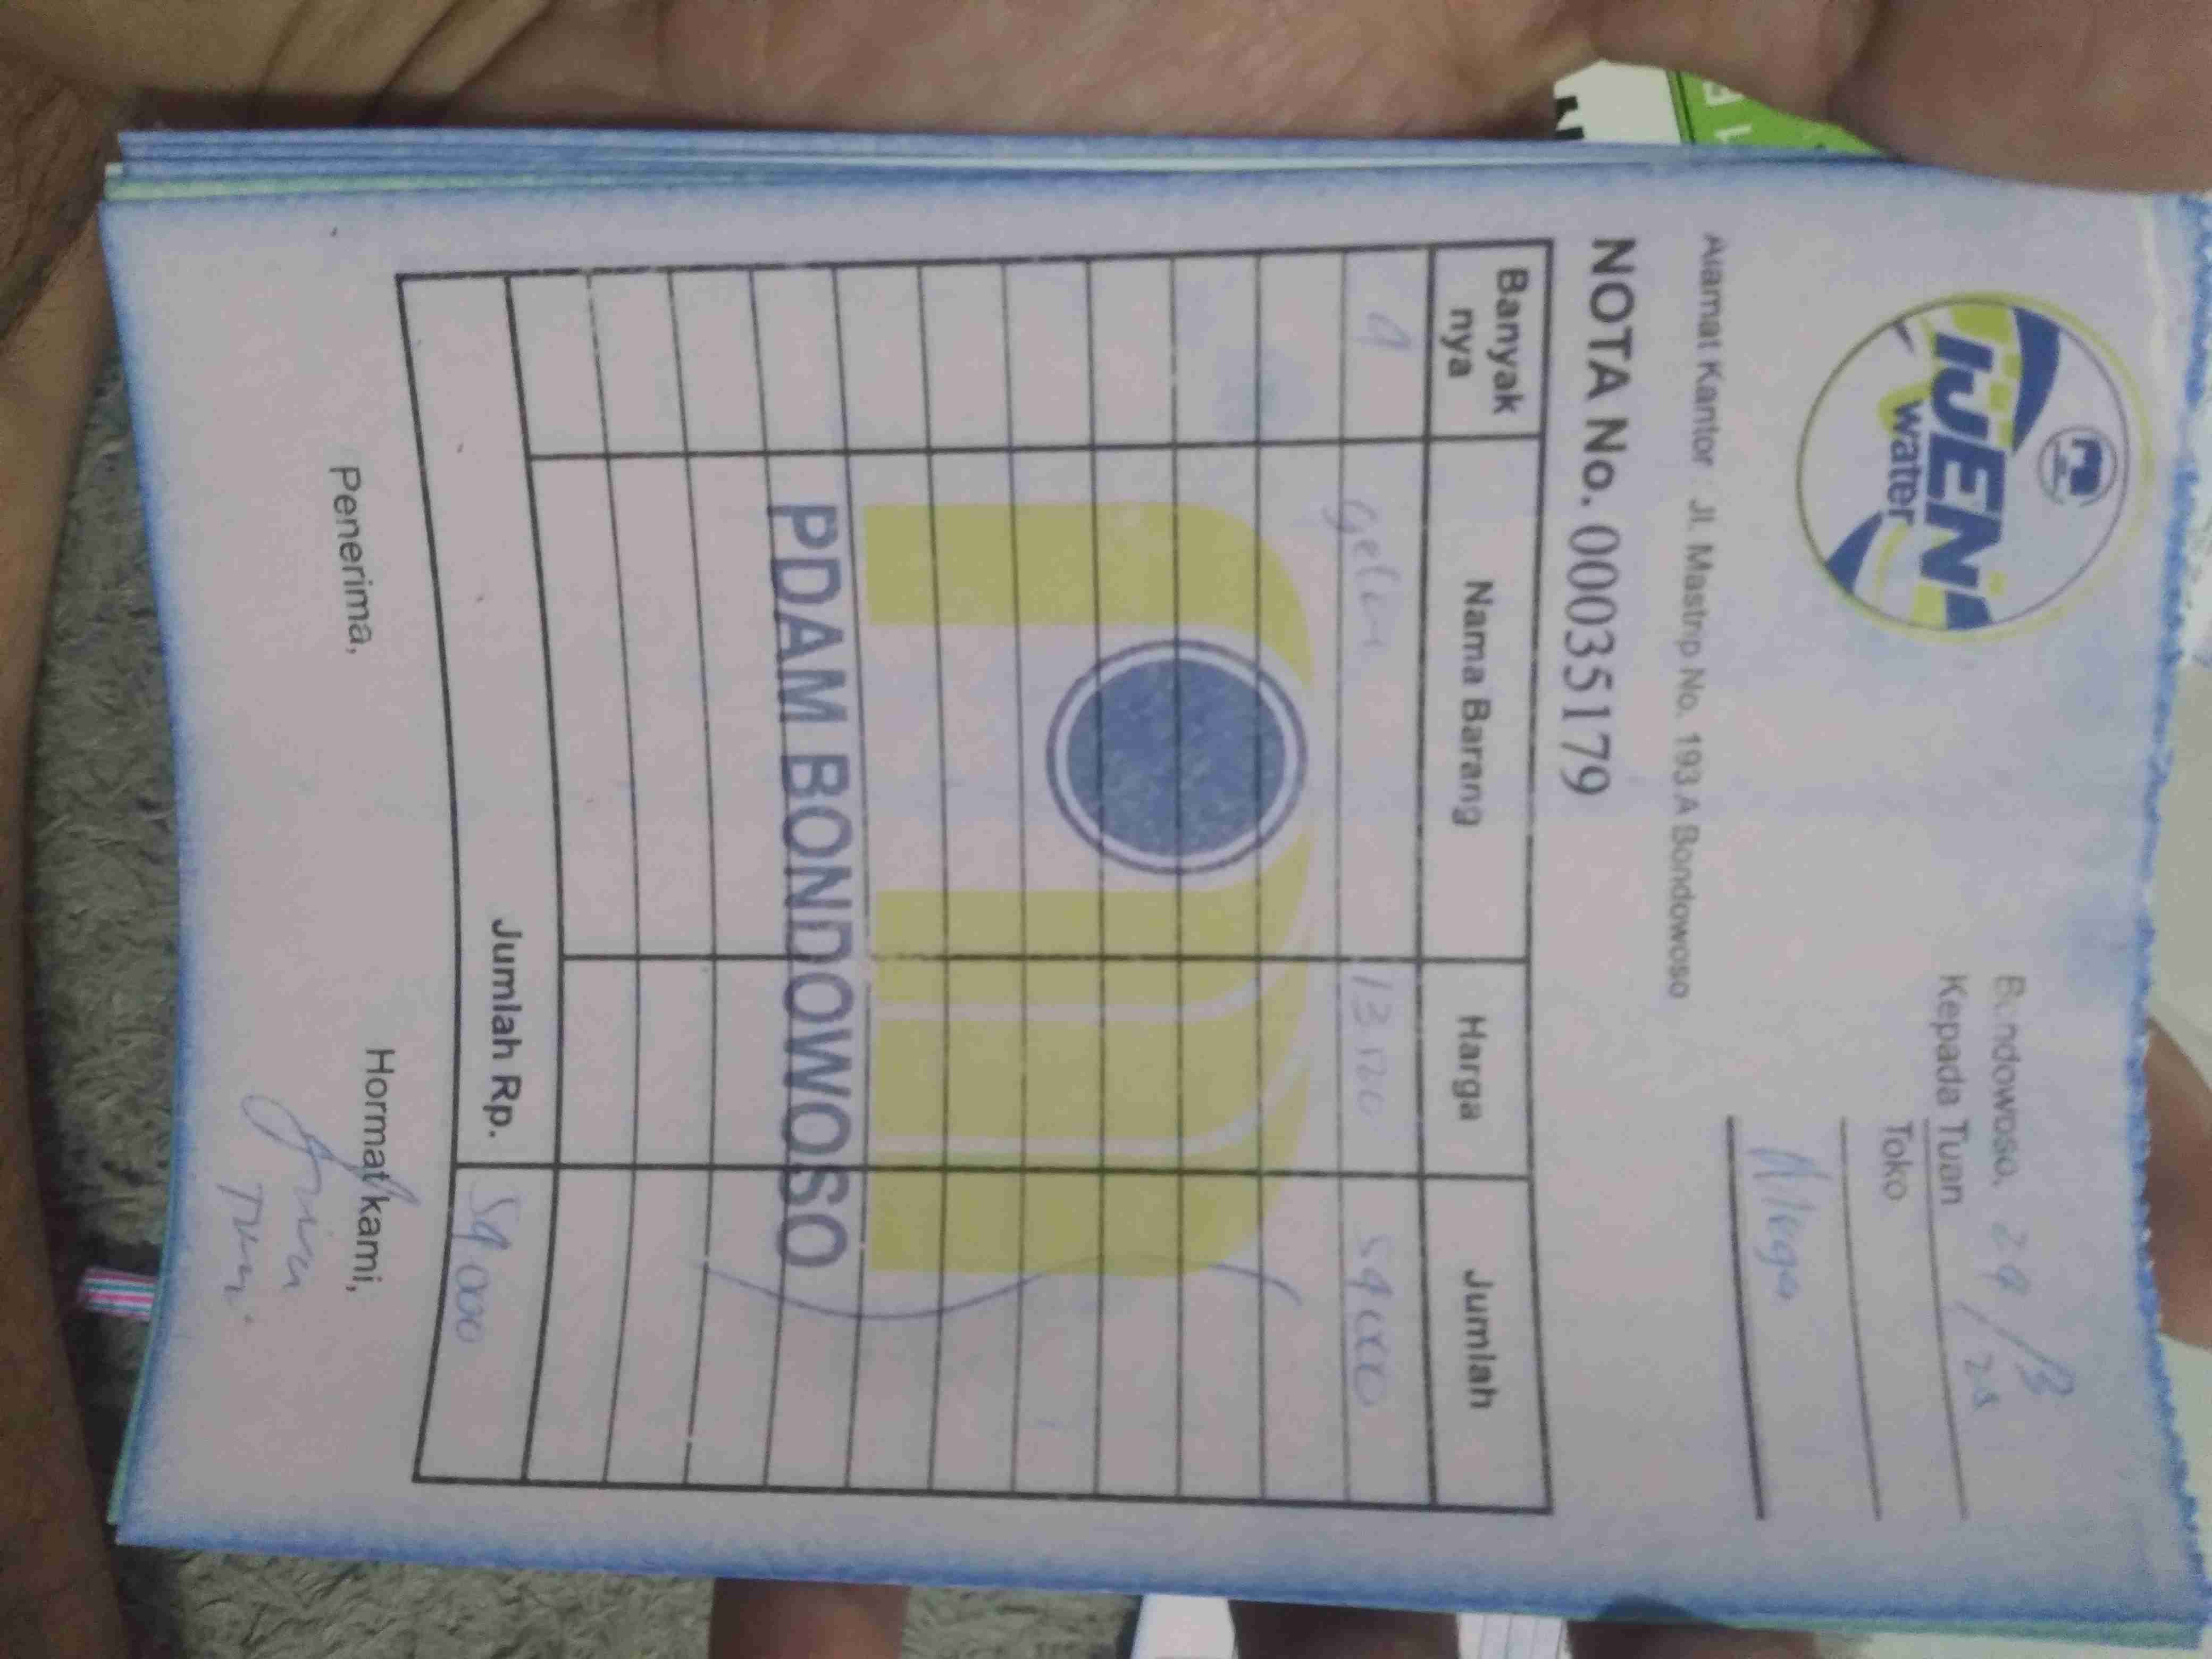 IJEN
water
Bondowoso, 24/3 25
Kepada Tuan
Toko
Alamat Kantor : Jl. Mastrip No. 193 A Bondowoso
NOTA No. 000351179
Banyak nya Nama Barang Harga Jumlah
4 gelas 13500 54000
PDAM BONDOWOSO
Jumlah Rp. 54000
Penerima, Hormat kami,